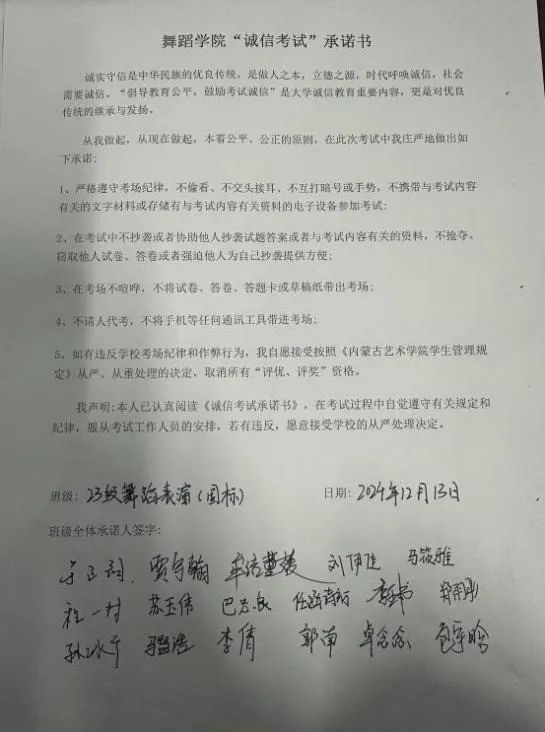 舞蹈学院“诚信考试”承诺书
诚实守信是中华民族的优良传统，是做人之本，立德之源，时代呼唤诚信，社会
需要诚信。“倡导教育公平，鼓励考试诚信”是大学诚信教育重要内容，更是对优良
传统的继承与发扬。
从我做起，从现在做起，本着公平、公正的原则，在此次考试中我庄严地做出如
下承诺：
1、严格遵守考场纪律，不偷看、不交头接耳、不互打暗号或手势，不携带与考试内容
有关的文字材料或存储有与考试内容有关资料的电子设备参加考试；
2、在考试中不抄袭或者协助他人抄袭试题答案或者与考试内容有关的资料，不抢夺、
窃取他人试卷、答卷或者强迫他人为自己抄袭提供方便；
3、在考场不喧哗，不将试卷、答卷、答题卡或草稿纸带出考场；
4、不请人代考，不将手机等任何通讯工具带进考场；
5、如有违反学校考场纪律和作弊行为，我自愿接受按照《内蒙古艺术学院学生管理规
定》从严、从重处理的决定，取消所有“评优、评奖”资格。
我声明：本人已认真阅读《诚信考试承诺书》，在考试过程中自觉遵守有关规定和
纪律，服从考试工作人员的安排，若有违反，愿意接受学校的从严处理决定。
班级：23级舞蹈表演（国标） 日期：2024年12月13日
班级全体承诺人签字：
贾宇翰 刘伊佳 马筱雅
苏玉伟
李倩 郭南 卓念念